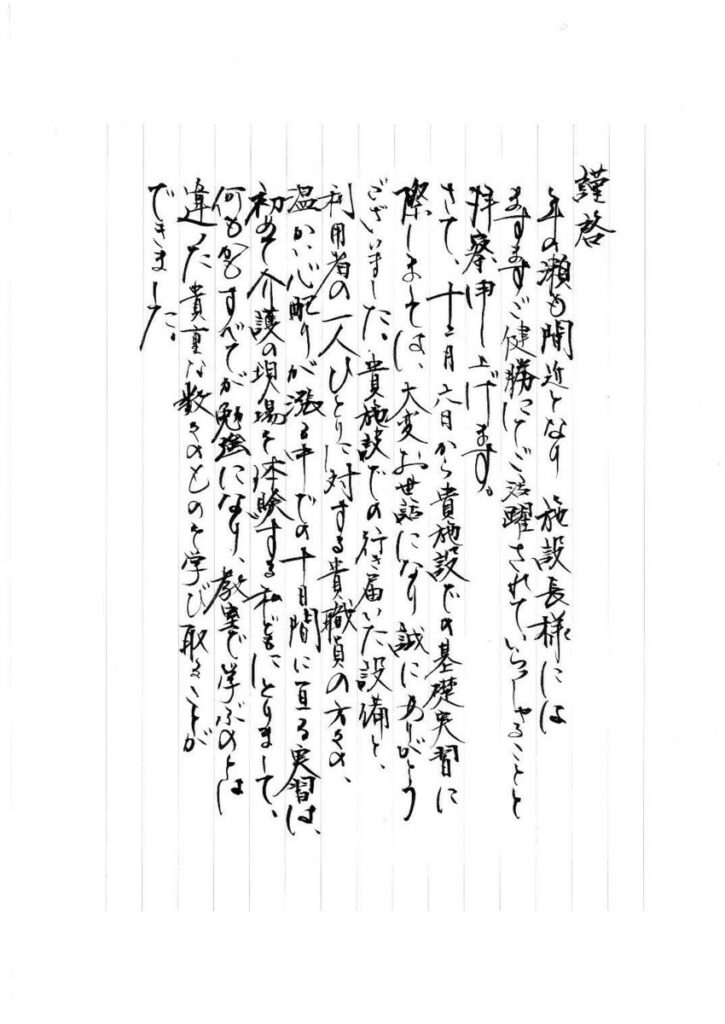 謹啓
年の瀬も間近となり 施設長様には
ますますご健勝にてご活躍されていらっしゃることと
拝察申し上げます。
さて、十二月六日から貴施設での基礎実習に
際しましては、大変お世話になり誠にありがとう
ございました。貴施設での行き届いた設備と、
利用者の一人ひとりに対する貴職員の方々の、
温かい心配りが漲る中での十日間に亘る実習は、
初めて介護の現場を体験する私どもにとりまして、
何もかもすべてが勉強になり、教室で学ぶのとは
違った貴重な数々のものを学び取ることが
できました。